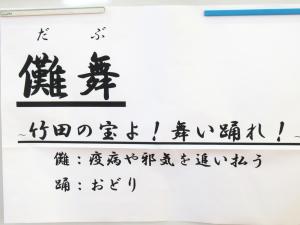 だぶ
儺舞
~竹田の宝よ！舞い踊れ！~
儺：疫病や邪気を追い払う
踊：おどり